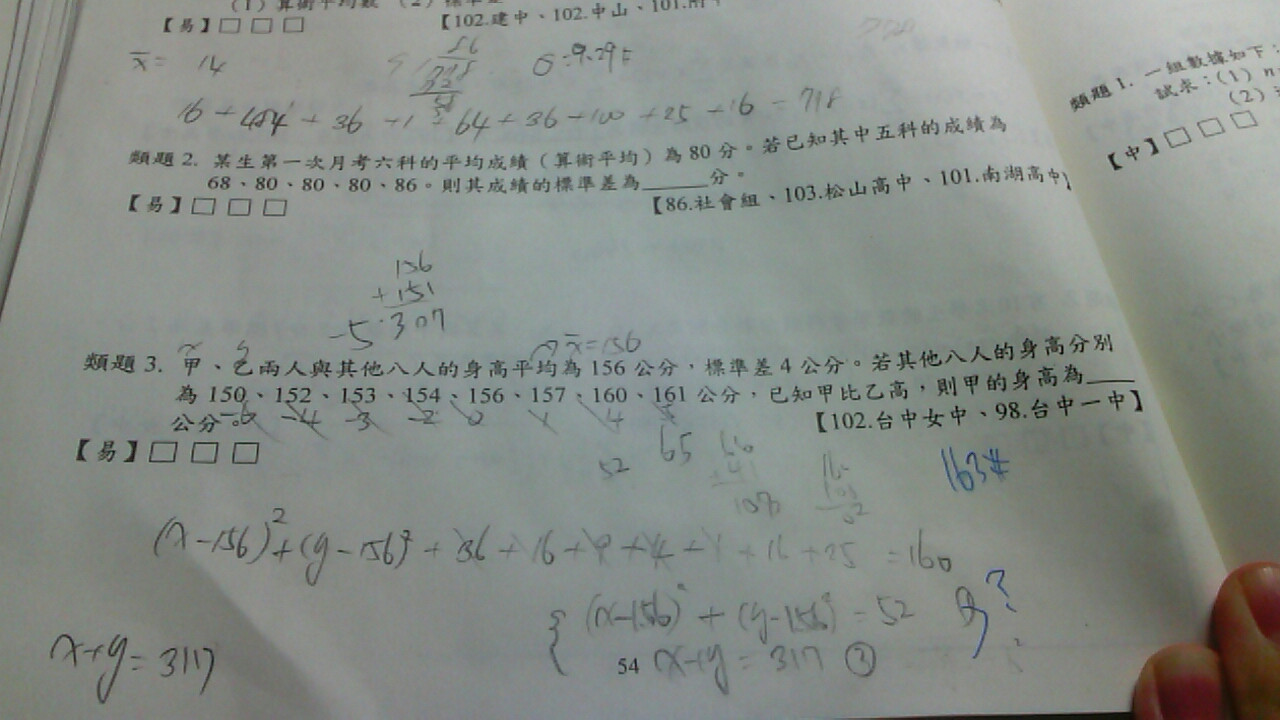 (1) 算術平均數 (2) 標準差
【易】□□□ 【102.建中、102.中山、101.
x̄ = 14
16 + + 36 + 1 + 64 + 36 + 100 + 25 + 16 = 718
類題 2. 某生第一次月考六科的平均成績(算術平均)為 80 分。若已知其中五科的成績為
68、80、80、80、86。則其成績的標準差為______分。
【易】□□□ 【86.社會組、103.松山高中、101.南湖高中】
156
+151
-5 307
x y x̄=156
類題 3. 甲、乙兩人與其他八人的身高平均為 156 公分,標準差 4 公分。若其他八人的身高分別
為 150、152、153、154、156、157、160、161 公分,已知甲比乙高,則甲的身高為____
公分。 -6 -4 -3 -2 0 1 4 5
【102.台中女中、98.台中一中】
【易】□□□
52 65
163#
(x-156)²+(y-156)² + 36 + 16 + 9 + 4 + 1 + 16 + 25 = 160
(x-156)² + (y-156)² = 52 ?
x+y = 317
54 x+y = 317 ②
類題 1. 一組數據如下:
試求:(1)
(2)
【中】□□□